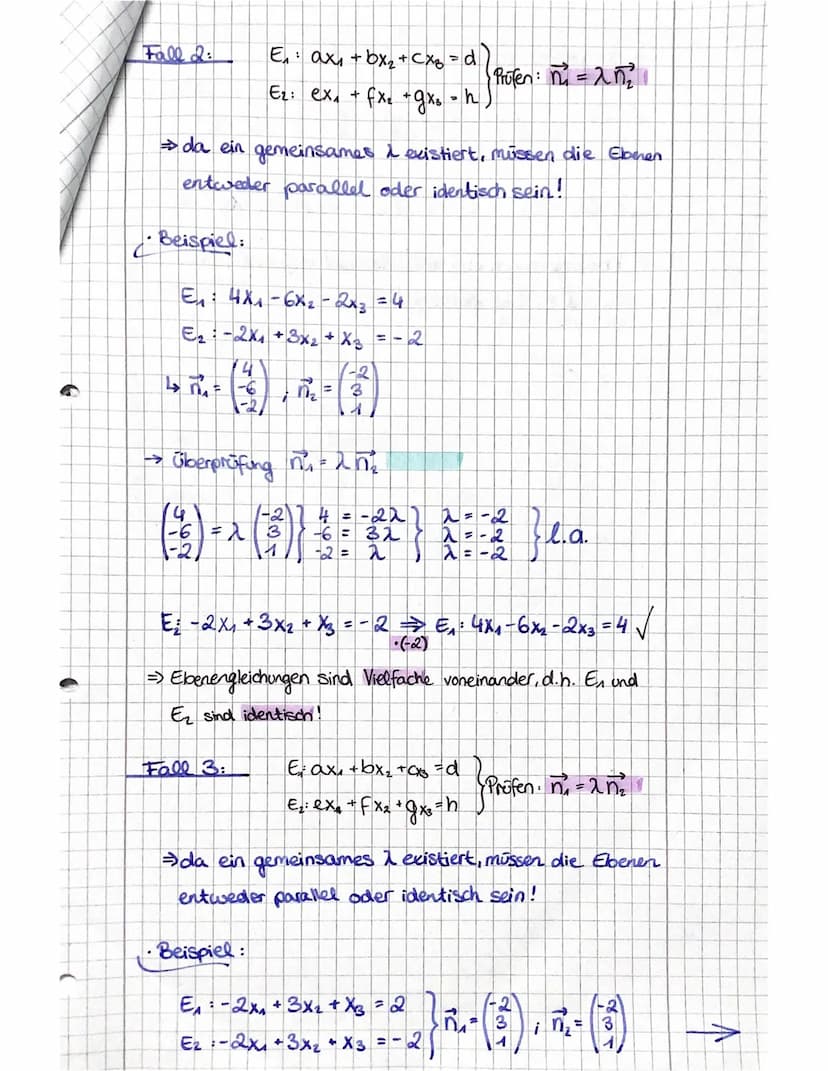 Fall 2:
E₁: ax₁ + bx₂ + cx₃ = d
E₂: ex₁ + fx₂ + gx₃ = h } Prüfen: n₁⃗ = λ n₂⃗
⇒ da ein gemeinsames λ existiert, müssen die Ebenen
entweder parallel oder identisch sein!
· Beispiel:
E₁: 4x₁ - 6x₂ - 2x₃ = 4
E₂: -2x₁ + 3x₂ + x₃ = -2
↳ n₁⃗ = (4 -6 -2) ; n₂⃗ = (-2 3 1)
→ Überprüfung n₁⃗ = λ n₂⃗
(4 -6 -2) = λ (-2 3 1) }
4 = -2λ } λ = -2
-6 = 3λ } λ = -2 } l.a.
-2 = λ } λ = -2
E₂: -2x₁ + 3x₂ + x₃ = -2 ⇒ E₁: 4x₁ - 6x₂ - 2x₃ = 4 √
·(-2)
⇒ Ebenengleichungen sind Vielfache voneinander, d.h. E₁ und
E₂ sind identisch!
Fall 3:
E₁: ax₁ + bx₂ + cx₃ = d
E₂: ex₁ + fx₂ + gx₃ = h } Prüfen: n₁⃗ = λ n₂⃗
⇒ da ein gemeinsames λ existiert, müssen die Ebenen
entweder parallel oder identisch sein!
· Beispiel:
E₁: -2x₁ + 3x₂ + x₃ = 2
E₂: -2x₁ + 3x₂ + x₃ = -2 } n₁⃗ = (-2 3 1) ; n₂⃗ = (-2 3 1) →